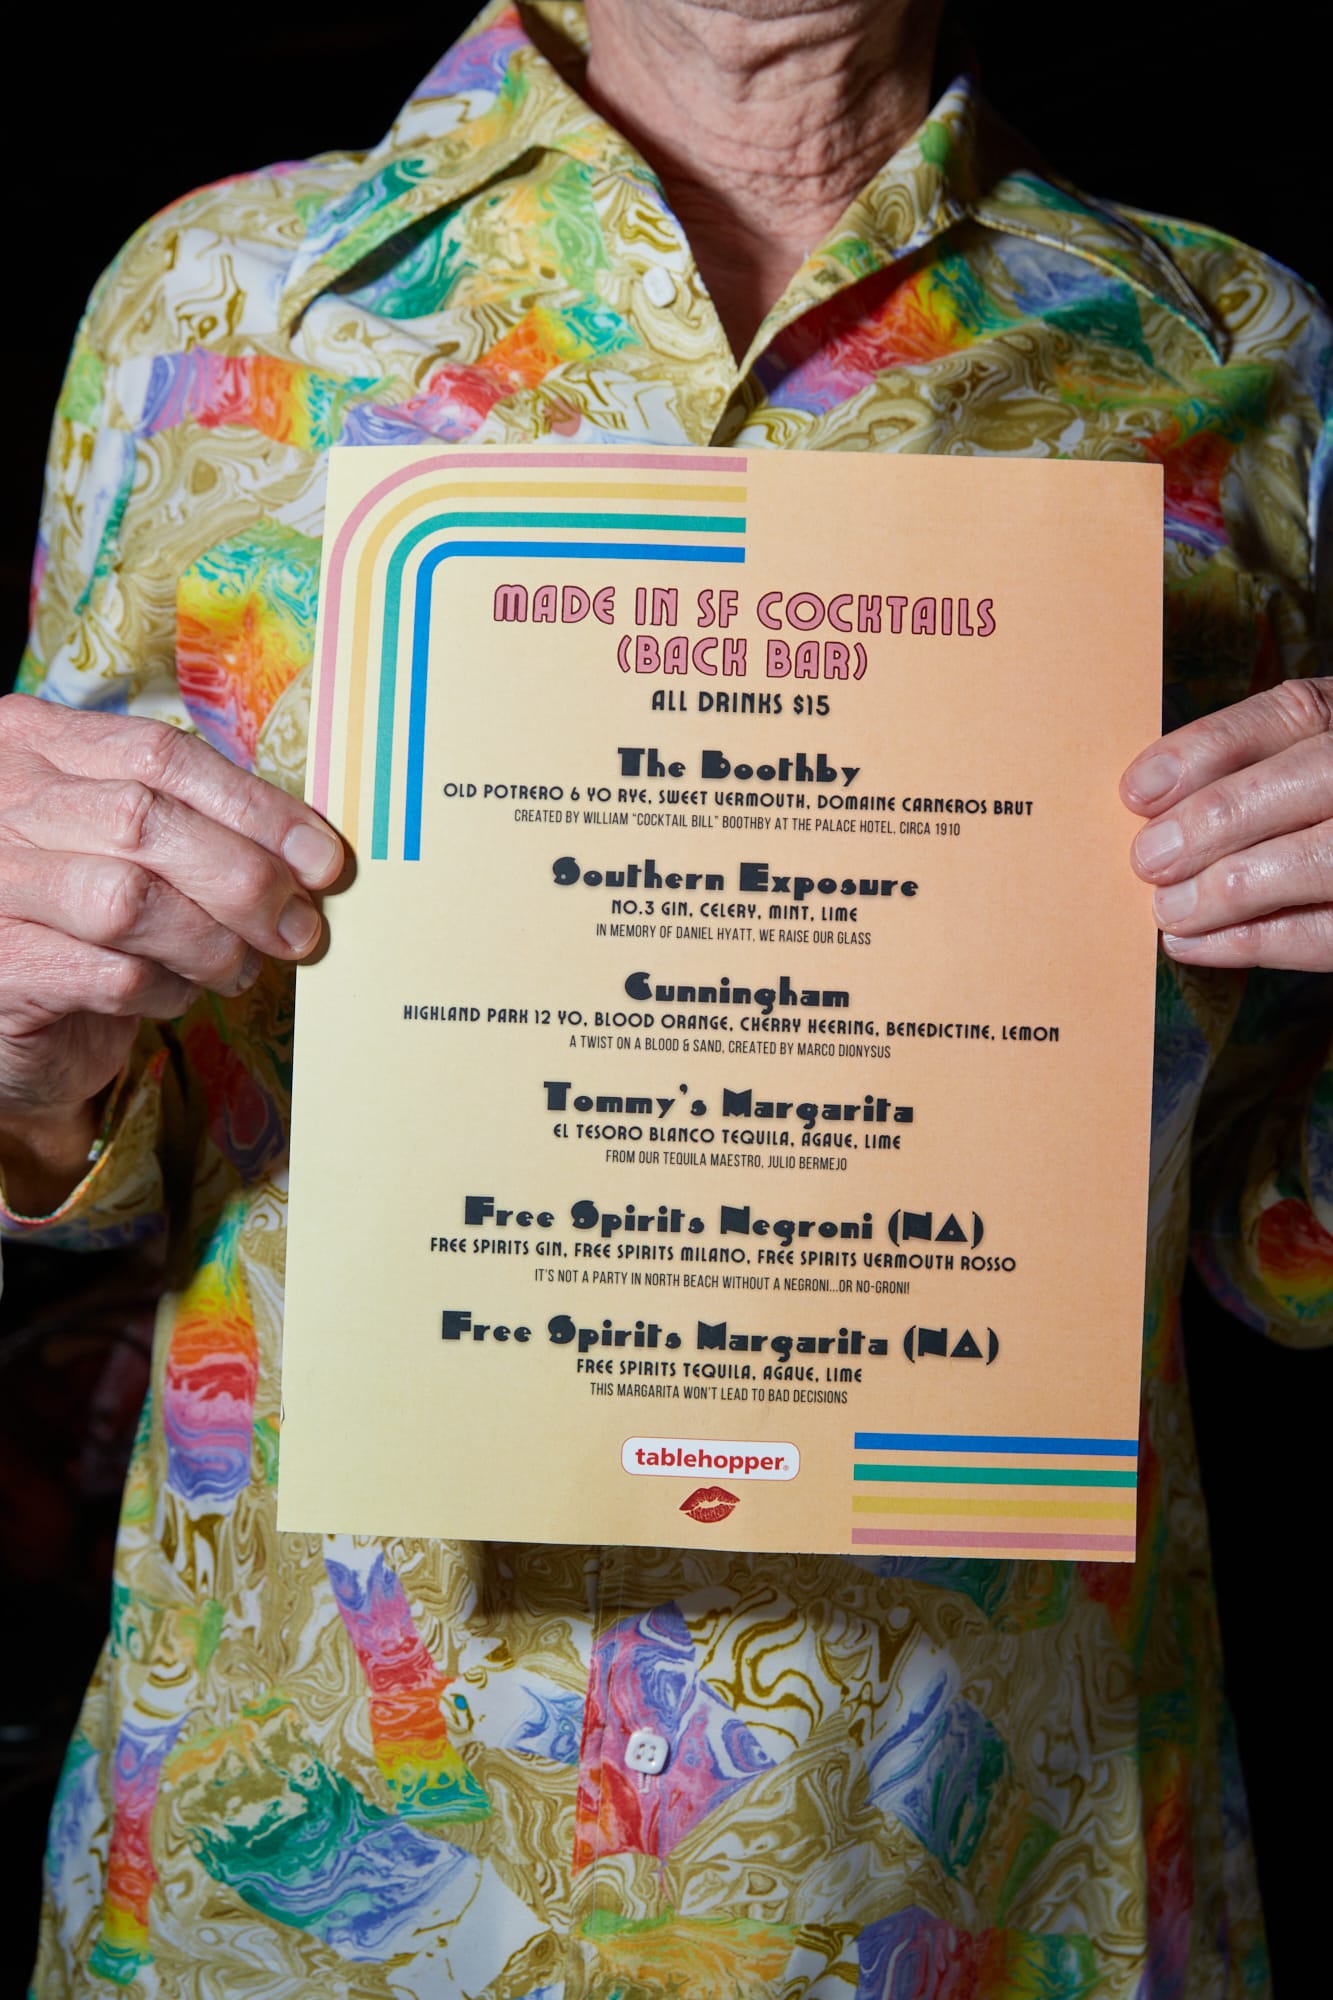 MADE IN SF COCKTAILS
(BACK BAR)
ALL DRINKS $15
The Boothby
OLD POTRERO 6 YO RYE, SWEET VERMOUTH, DOMAINE CARNEROS BRUT
CREATED BY WILLIAM "COCKTAIL BILL" BOOTHBY AT THE PALACE HOTEL, CIRCA 1910
Southern Exposure
NO.3 GIN, CELERY, MINT, LIME
IN MEMORY OF DANIEL HYATT, WE RAISE OUR GLASS
Cunningham
HIGHLAND PARK 12 YO, BLOOD ORANGE, CHERRY HEERING, BENEDICTINE, LEMON
A TWIST ON A BLOOD & SAND, CREATED BY MARCO DIONYSUS
Tommy's Margarita
EL TESORO BLANCO TEQUILA, AGAVE, LIME
FROM OUR TEQUILA MAESTRO, JULIO BERMEJO
Free Spirits Negroni (NA)
FREE SPIRITS GIN, FREE SPIRITS MILANO, FREE SPIRITS VERMOUTH ROSSO
IT'S NOT A PARTY IN NORTH BEACH WITHOUT A NEGRONI...OR NO-GRONI!
Free Spirits Margarita (NA)
FREE SPIRITS TEQUILA, AGAVE, LIME
THIS MARGARITA WON'T LEAD TO BAD DECISIONS
tablehopper®